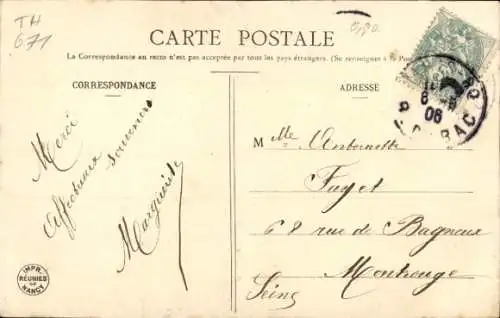 TH
671
0,80
CARTE POSTALE
La Correspondance au recto n'est pas acceptée par tous les pays étrangers. (Se renseigner à la Poste
CORRESPONDANCE
ADRESSE
Merci
Affectueux souvenirs
Marguerite
Mlle Antoinette
Fayet
68 rue de Bagneux
Montrouge
Seine
6 -5
06
IMPR.
RÉUNIES
DE
NANCY